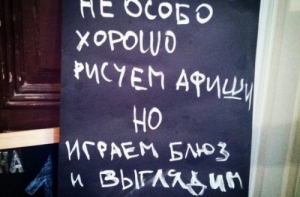 НЕ ОСОБО
ХОРОШО
РИСУЕМ АФИШИ
НО
ИГРАЕМ БЛЮЗ
И ВЫГЛЯДИМ
НА